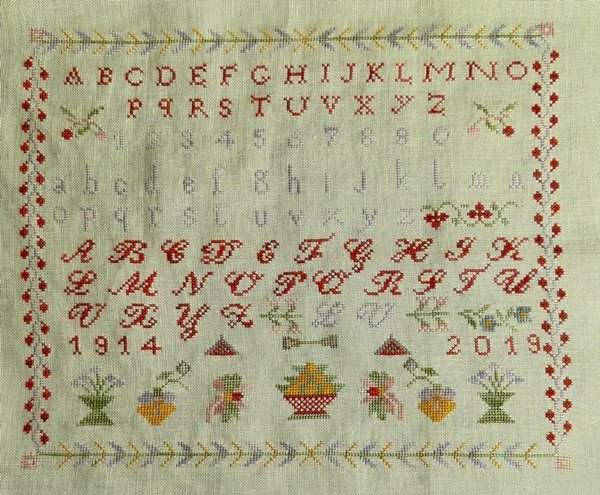 A B C D E F G H I J K L M N O
P Q R S T U V X Y Z
1 2 3 4 5 6 7 8 9 0
a b c d e f g h i j k l m n
o p q r s t u v x y z
A B C D E F G H I K
L M N O P Q R S T U
V X Y Z L V
1914 2019